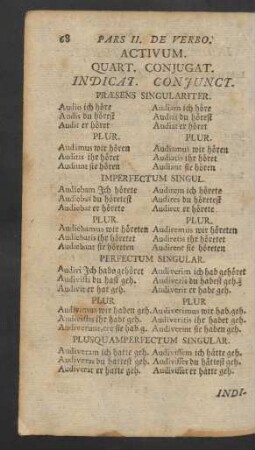 68 PARS II. DE VERBO.
ACTIVUM.
QUART. CONJUGAT.
INDICAT. CONJUNCT.
PRÆSENS SINGULARITER.
Audio ich höre Audiam ich höre
Audis du hörest Audias du hörest
Audit er höret Audiat er höret
PLUR. PLUR.
Audimus wir hören Audiamus wir hören
Auditis ihr höret Audiatis ihr höret
Audiunt sie hören Audiant sie hören
IMPERFECTUM SINGUL.
Audiebam Ich hörete Audirem ich hörete
Audiebas du höretest Audires du höretest
Audiebat er hörete Audiret er hörete
PLUR. PLUR.
Audiebamus wir höreten Audiremus wir höreten
Audiebatis ihr höretet Audiretis ihr höretet
Audiebant sie höreten Audirent sie höreten
PERFECTUM SINGULAR.
Audivi Ich habe gehöret Audiverim ich hab gehöret
Audivisti du hast geh. Audiveris du habest geh.
Audivit er hat geh. Audiverit er habe geh.
PLUR PLUR
Audivimus wir haben geh. Audiverimus wir hab. geh.
Audivistis ihr habt geh. Audiveritis ihr habet geh.
Audiverunt, ere sie hab g. Audiverint sie haben geh.
PLUSQUAMPERFECTUM SINGULAR.
Audiveram ich hatte geh. Audivissem ich hätte geh.
Audiveras du hattest geh. Audivisses du hättest geh.
Audiverat er hatte geh. Audivisset er hätte geh.
INDI-